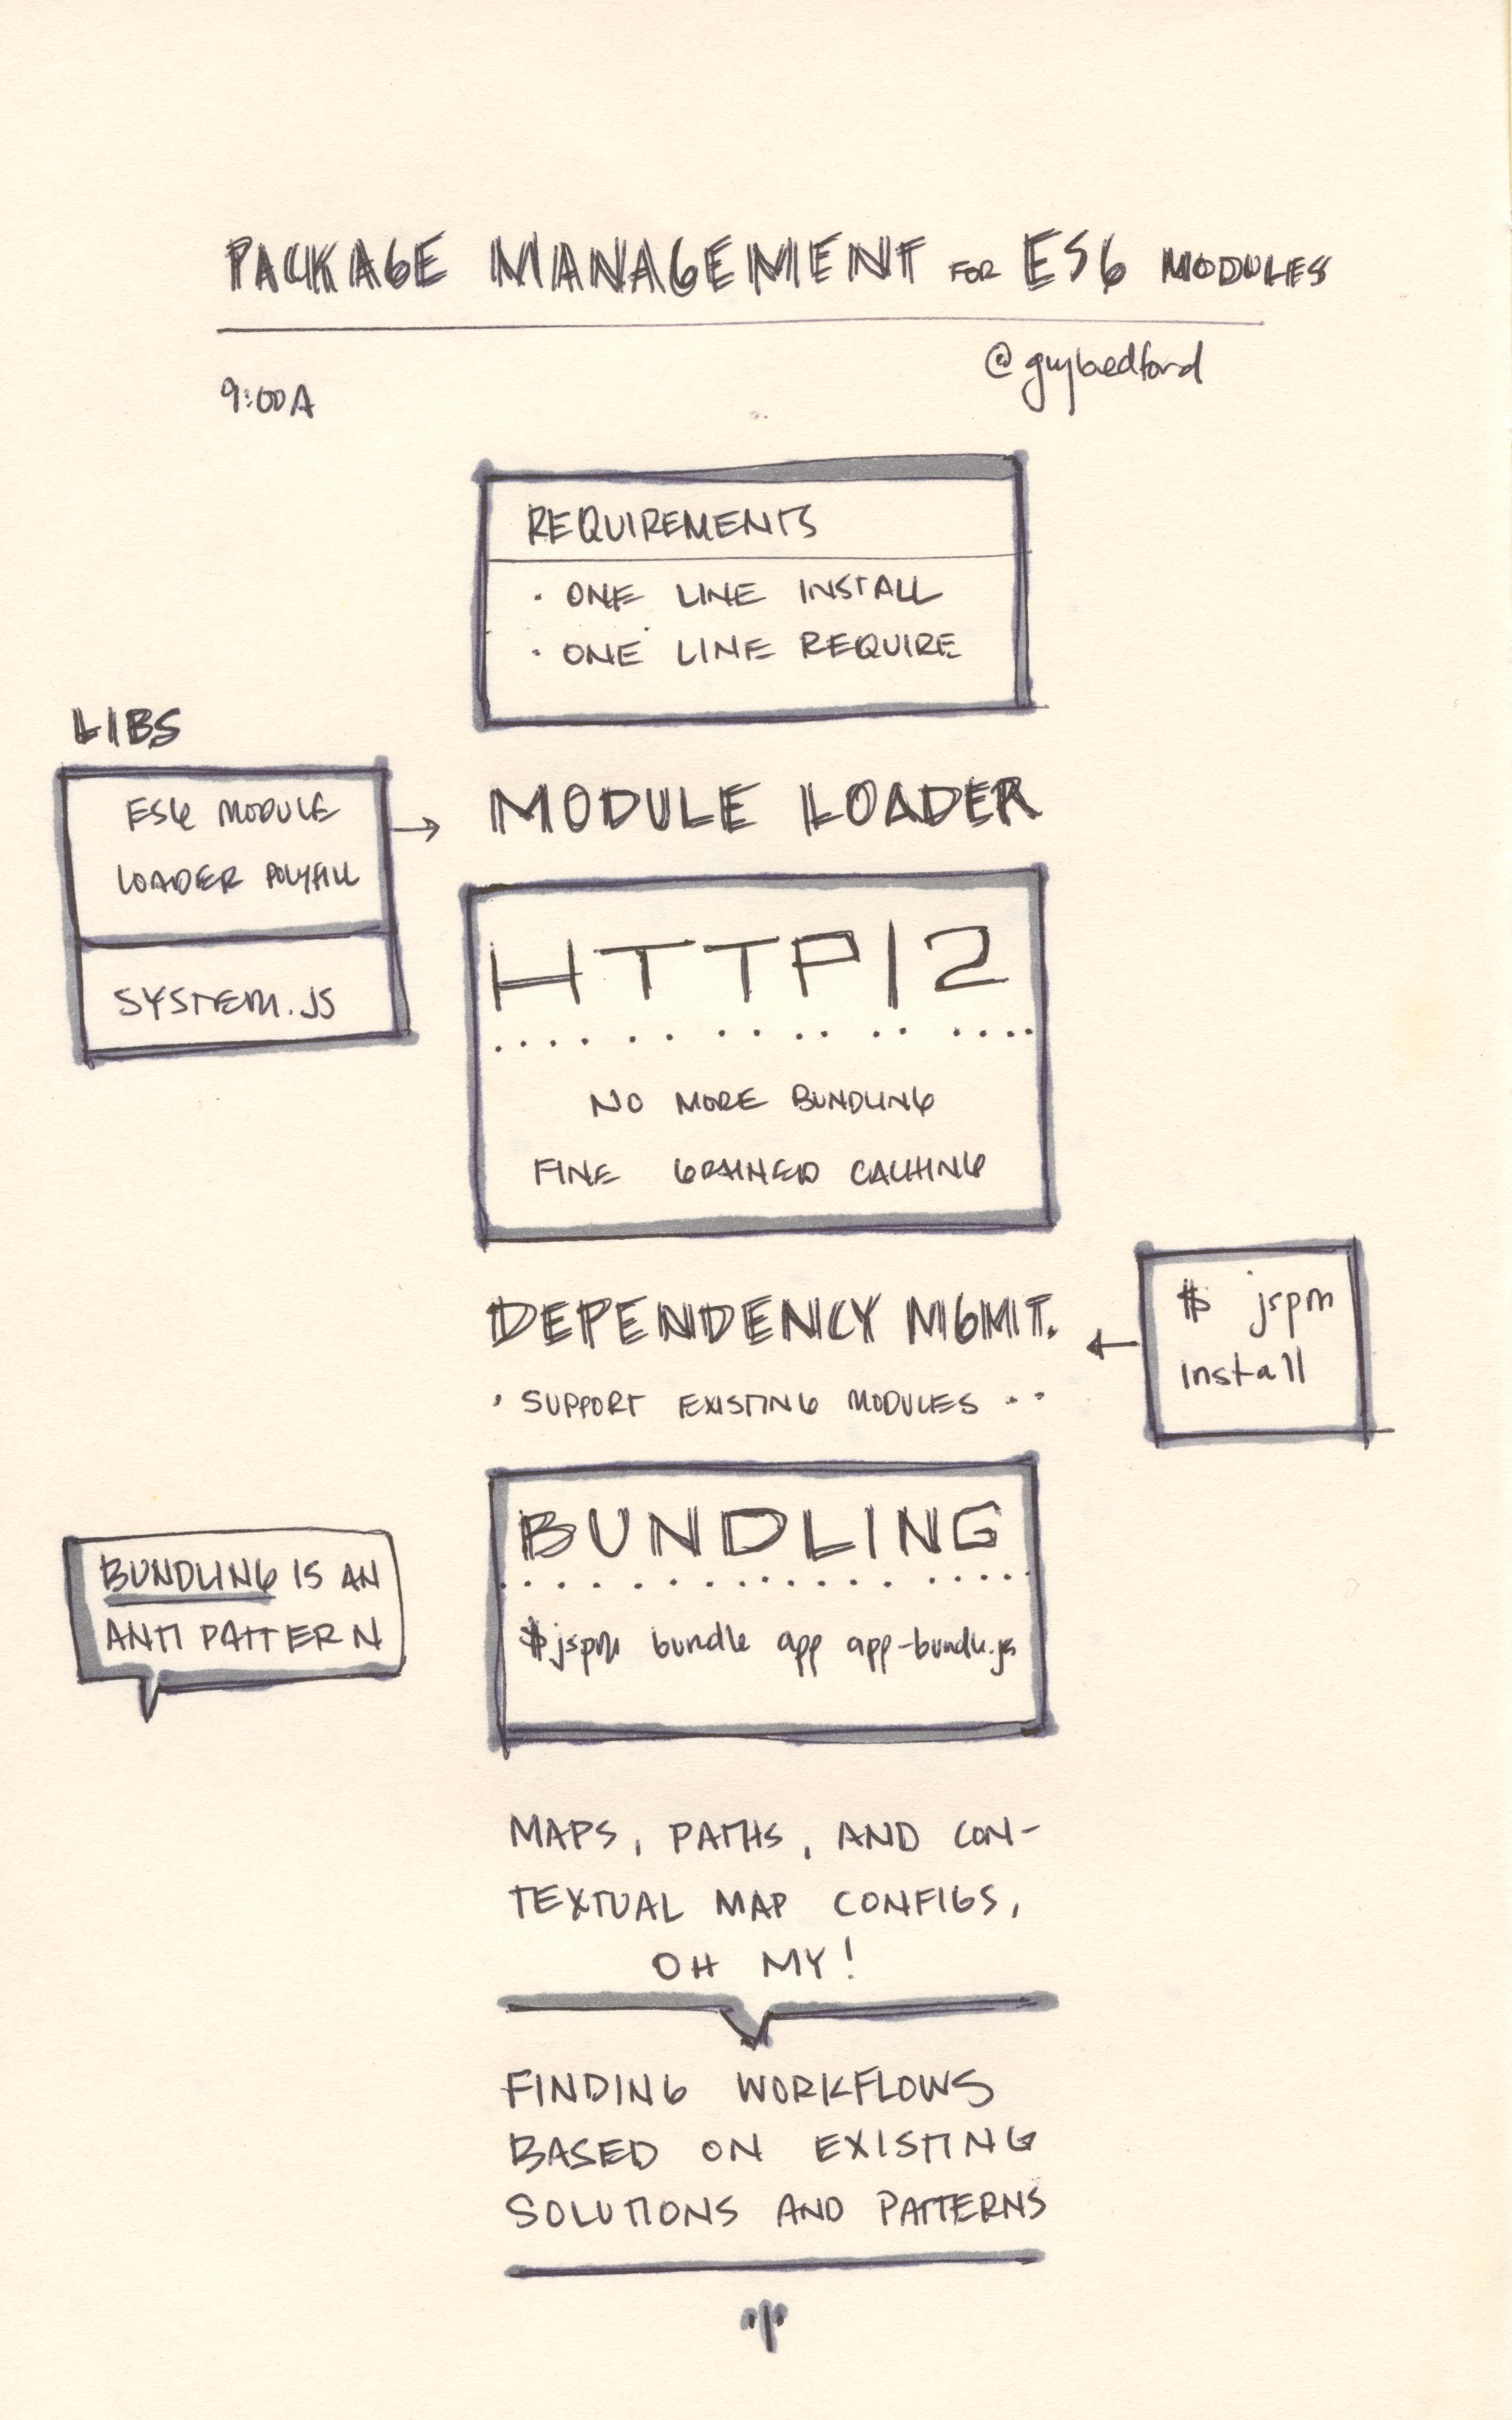 PACKAGE MANAGEMENT FOR ES6 MODULES
@guybedford
9:00A
REQUIREMENTS
· ONE LINE INSTALL
· ONE LINE REQUIRE
LIBS
ES6 MODULE
LOADER POLYFILL
SYSTEM.JS
MODULE LOADER
HTTP|2
NO MORE BUNDLING
FINE GRAINED CACHING
DEPENDENCY MGMT.
· SUPPORT EXISTING MODULES ··
$ jspm
install
BUNDLING
$jspm bundle app app-bundle.js
BUNDLING IS AN
ANTI PATTERN
MAPS, PATHS, AND CON-
TEXTUAL MAP CONFIGS,
OH MY!
FINDING WORKFLOWS
BASED ON EXISTING
SOLUTIONS AND PATTERNS